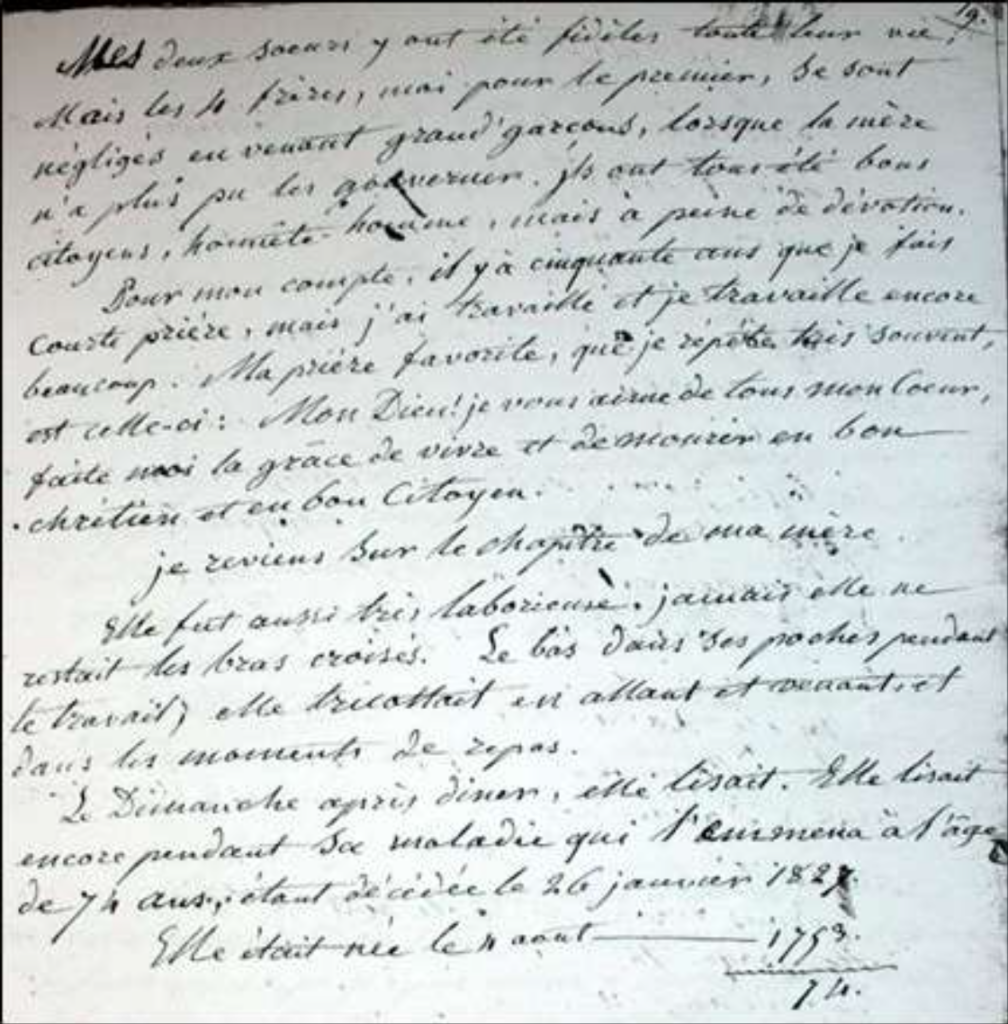 19.
Mes deux soeurs y ont été fidèles toute leur vie,
Mais les 4 frères, moi pour le premier, se sont
négligés en venant grand' garçons, lorsque la mère
n'a plus pu les gouverner. ils ont tous été bons
citoyens, honnête homme, mais à peine de dévotion.
Pour mon compte, il y à cinquante ans que je fais
courte prière, mais j'ai travaillé et je travaille encore
beaucoup. Ma prière favorite, que je répète très souvent,
est celle-ci: Mon Dieu! je vous aime de tous mon Coeur,
faite moi la grâce de vivre et de mourir en bon
chrétien et en bon Citoyen.
je reviens sur le chapître de ma mère.
Elle fut aussi très laborieuse. jamais elle ne
restait les bras croisés. Le bas dans ses poches pendant
le travail, elle tricottait en allant et venant, et
dans les moments de repos.
Le Dimanche après diner, elle lisait. Elle lisait
encore pendant sa maladie qui l'emmena à l'âge
de 74 ans, étant décédée le 26 janvier 1827.
Elle était née le 4 aout — 1753.
74.